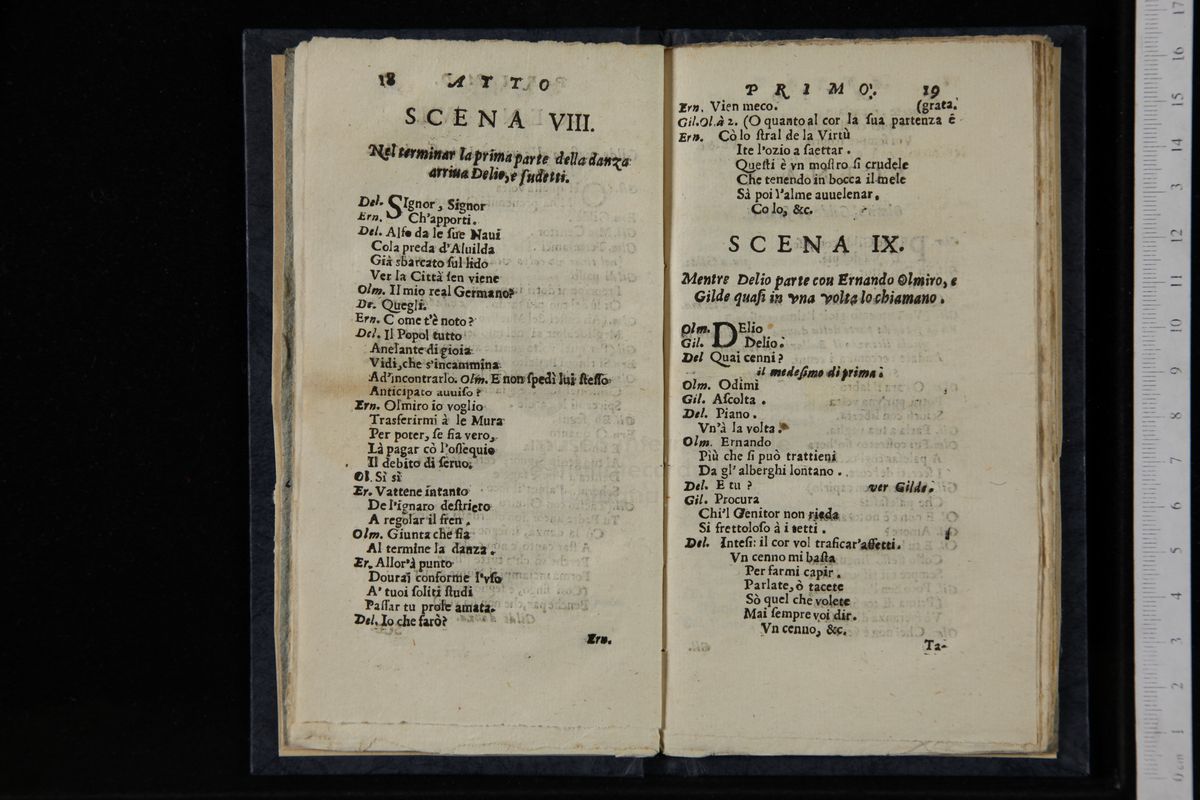 18 ATTO
SCENA VIII.
Nel terminar la prima parte della danza
arriua Delio, e sudetti.
Del. SIgnor, Signor
Ern. Ch'apporti.
Del. Alfo da le sue Naui
Cola preda d'Aluilda
Già sbarcato sul lido
Ver la Città sen viene
Olm. Il mio real Germano?
De. Quegli.
Ern. Come t'è noto?
Del. Il Popol tutto
Anelante di gioia
Vidi, che s'incammina
Ad'incontrarlo. Olm. E non spedì lui stesso
Anticipato auuiso?
Ern. Olmiro io voglio
Trasferirmi à le Mura
Per poter, se fia vero,
Là pagar cò l'ossequio
Il debito di seruo.
Ol. Sì sì
Er. Vattene intanto
De l'ignaro destriero
A regolar il fren.
Olm. Giunta che fia
Al termine la danza.
Er. Allor'à punto
Douraï conforme l'vso
A' tuoi soliti studi
Passar tu prole amata.
Del. Io che farò?
Ern.
PRIMO. 19
Ern. Vien meco. (grata.
Gil. Ol. à 2. (O quanto al cor la sua partenza è
Ern. Cò lo stral de la Virtù
Ite l'ozio a saettar.
Questi è vn mostro sì crudele
Che tenendo in bocca il mele
Sà poi l'alme auuelenar.
Co lo, &c.
SCENA IX.
Mentre Delio parte con Ernando Olmiro, e
Gilde quasi in vna volta lo chiamano.
Olm. DElio
Gil. Delio.
Del Quai cenni?
il medesimo di prima.
Olm. Odimi
Gil. Ascolta.
Del. Piano.
Vn'à la volta.
Olm. Ernando
Più che si può trattieni
Da gl'alberghi lontano.
Del. E tu? ver Gilde.
Gil. Procura
Chi'l Genitor non rieda
Si frettoloso à i tetti.
Del. Intesi: il cor vol traficar'affetti.
Vn cenno mi basta
Per farmi capir.
Parlate, ò tacete
Sò quel che volete
Mai sempre voi dir.
Vn cenno, &c.
Ta-
0 cm 1 2 3 4 5 6 7 8 9 10 11 12 13 14 15 16 17